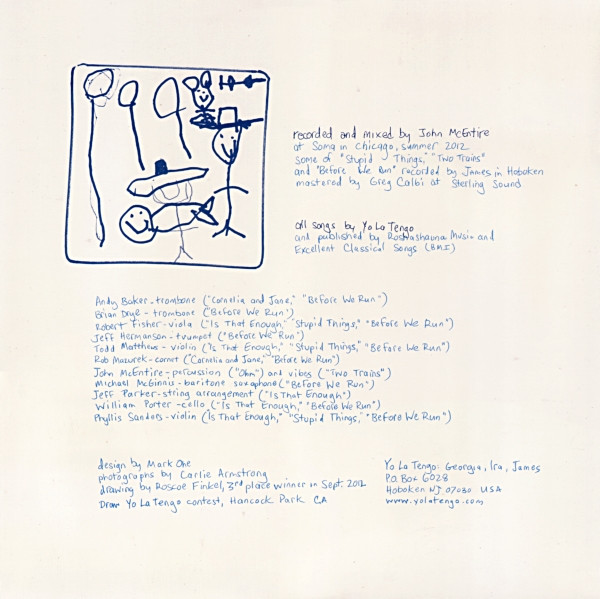 recorded and mixed by John McEntire
at Soma in Chicago, summer 2012
some of "Stupid Things," "Two Trains"
and "Before We Run" recorded by James in Hoboken
mastered by Greg Calbi at Sterling Sound
all songs by Yo La Tengo
and published by Roshashauna Music and
Excellent Classical Songs (BMI)
Andy Baker - trombone ("Cornelia and Jane," "Before We Run")
Brian - trombone ("Before We Run")
Robert Fisher - viola ("Is That Enough," "Stupid Things," "Before We Run")
Jeff Hermanson - trumpet ("Before We Run")
Todd Matthews - violin ("Is That Enough," "Stupid Things," "Before We Run")
Rob Mazurek - cornet ("Cornelia and Jane," "Before We Run")
John McEntire - percussion ("Ohm") and vibes ("Two Trains")
Michael McGinnis - baritone saxophone ("Before We Run")
Jeff Parker - string arrangement ("Is That Enough")
William Porter - cello ("Is That Enough," "Before We Run")
Phyllis Sanders - violin (Is That Enough," "Stupid Things," "Before We Run")
design by Mark One
photographs by Carlie Armstrong
drawing by Roscoe Finkel, 3rd place winner in Sept. 2012
Draw Yo La Tengo contest, Hancock Park CA
Yo La Tengo: Georgia, Ira, James
PO Box 6028
Hoboken NJ 07030 USA
www.yolatengo.com